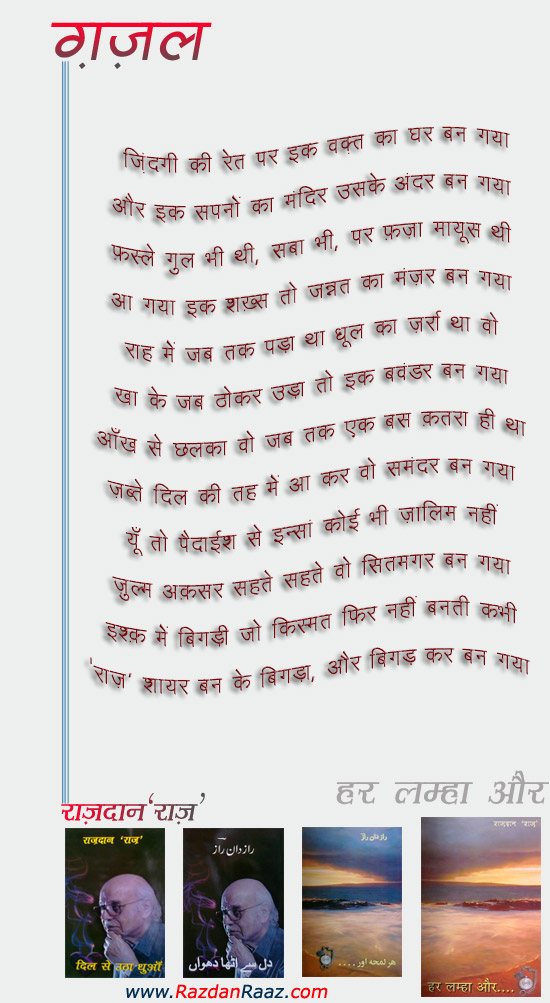 ग़ज़ल
ज़िंदगी की रेत पर इक वक़्त का घर बन गया
और इक सपनों का मंदिर उसके अंदर बन गया
फ़स्ले गुल भी थी, सबा भी, पर फ़ज़ा मायूस थी
आ गया इक शख़्स तो जन्नत का मंज़र बन गया
राह में जब तक पड़ा था धूल का ज़र्रा था वो
खा के जब ठोकर उड़ा तो इक बवंडर बन गया
आँख से छलका वो जब तक एक बस क़तरा ही था
ज़ब्ते दिल की तह में आ कर वो समंदर बन गया
यूँ तो पैदाईश से इन्सां कोई भी ज़ालिम नहीं
ज़ुल्म अक़सर सहते सहते वो सितमगर बन गया
इश्क़ में बिगड़ी जो किस्मत फिर नहीं बनती कभी
'राज़' शायर बन के बिगड़ा, और बिगड़ कर बन गया
हर लम्हा और
राज़दान ‘राज़’
राज़दान ‘राज़’
दिल से उठा धुआँ
رازدان راز
دل سے اٹھا دھواں
رازدان راز
ہر لمحہ اور....
राज़दान ‘राज़’
हर लम्हा और....
www.RazdanRaaz.com